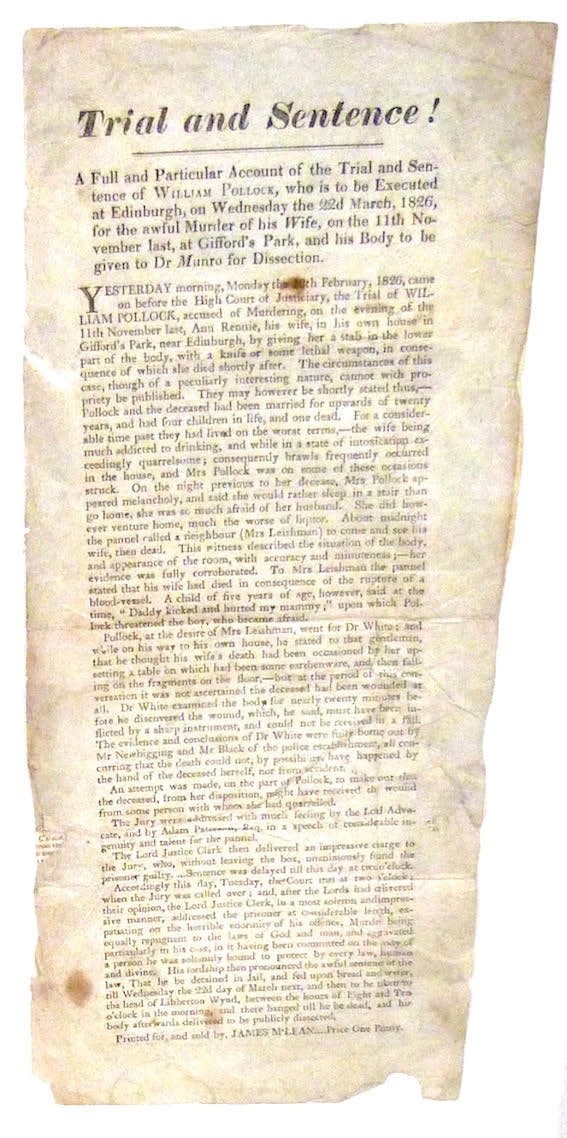 Trial and Sentence!
A Full and Particular Account of the Trial and Sen-
tence of WILLIAM POLLOCK, who is to be Executed
at Edinburgh, on Wednesday the 22d March, 1826,
for the awful Murder of his Wife, on the 11th No-
vember last, at Gifford's Park, and his Body to be
given to Dr Munro for Dissection.
YESTERDAY morning, Monday the February, 1826, came
on before the High Court of Justiciary, the Trial of WIL-
LIAM POLLOCK, accused of Murdering, on the evening of the
11th November last, Ann Rennie, his wife, in his own house in
Gifford's Park, near Edinburgh, by giving her a stab in the lower
part of the body, with a knife or some lethal weapon, in conse-
quence of which she died shortly after. The circumstances of this
case, though of a peculiarly interesting nature, cannot with pro-
priety be published. They may however be shortly stated thus,—
Pollock and the deceased had been married for upwards of twenty
years, and had four children in life, and one dead. For a consider-
able time past they had lived on the worst terms,—the wife being
much addicted to drinking, and while in a state of intosication ex-
ceedingly quarrelsome; consequently brawls frequently occurred
in the house, and Mrs Pollock was on some of these occasions
struck. On the night previous to her decease, Mrs Pollock ap-
peared melancholy, and said she would rather sleep in a stair than
go home, she was so much afraid of her husband. She did how-
ever venture home, much the worse of liquor. About midnight
the pannel called a neighbour (Mrs Leishman) to come and see his
wife, then dead. This witness described the situation of the body,
and appearance of the room, with accuracy and minuteness;—her
evidence was fully corroborated. To Mrs Leishman the pannel
stated that his wife had died in consequence of the rupture of a
blood-vessel. A child of five years of age, however, said at the
time, "Daddy kicked and hurted my mammy;" upon which Pol-
lock threatened the boy, who became afraid.
Pollock, at the desire of Mrs Leishman, went for Dr White; and
while on his way to his own house, he stated to that gentleman,
that he thought his wife's death had been occasioned by her up-
setting a table on which had been some earthenware, and then fall-
ing on the fragments on the floor,—but at the period of this con-
versation it was not ascertained the deceased had been wounded at
all. Dr White examined the body for nearly twenty minutes be-
fore he discovered the wound, which, he said, must have been in-
flicted by a sharp instrument, and could not be received in a fall.
The evidence and conclusions of Dr White were fully borne out by
Mr Newbigging and Mr Black of the police establishment, all con-
curring that the death could not, by possibility, have happened by
the hand of the deceased herself, nor from accident.
An attempt was made, on the part of Pollock, to make out that
the deceased, from her disposition, might have received the wound
from some person with whom she had quarrelled.
The Jury were addressed with much feeling by the Lord Advo-
cate, and by Adam Paterson, Esq. in a speech of considerable in-
genuity and talent for the pannel.
The Lord Justice Clerk then delivered an impressive charge to
the Jury, who, without leaving the box, unanimously found the
prisoner guilty. ...Sentence was delayed till this day at two o'clock.
Accordingly this day, Tuesday, the Court met at two o'clock,
when the Jury was called over; and, after the Lords had delivered
their opinion, the Lord Justice Clerk, in a most solemn and impres-
sive manner, addressed the prisoner at considerable length, ex-
patiating on the horrible enormity of his offence, Murder being
equally repugnant to the laws of God and man, and aggravated
particularly in his case, in it having been committed on the body of
a person he was solemnly bound to protect by every law, human
and divine. His lordship then pronounced the awful sentence of the
law, That he be detained in Jail, and fed upon bread and water,
till Wednesday the 22d day of March next, and then to be taken to
the head of Libberton Wynd, between the hours of Eight and Ten
o'clock in the morning, and there hanged till he be dead, and his
body afterwards delivered to be publicly dissected.
Printed for, and sold by, JAMES M'LEAN....Price One Penny.